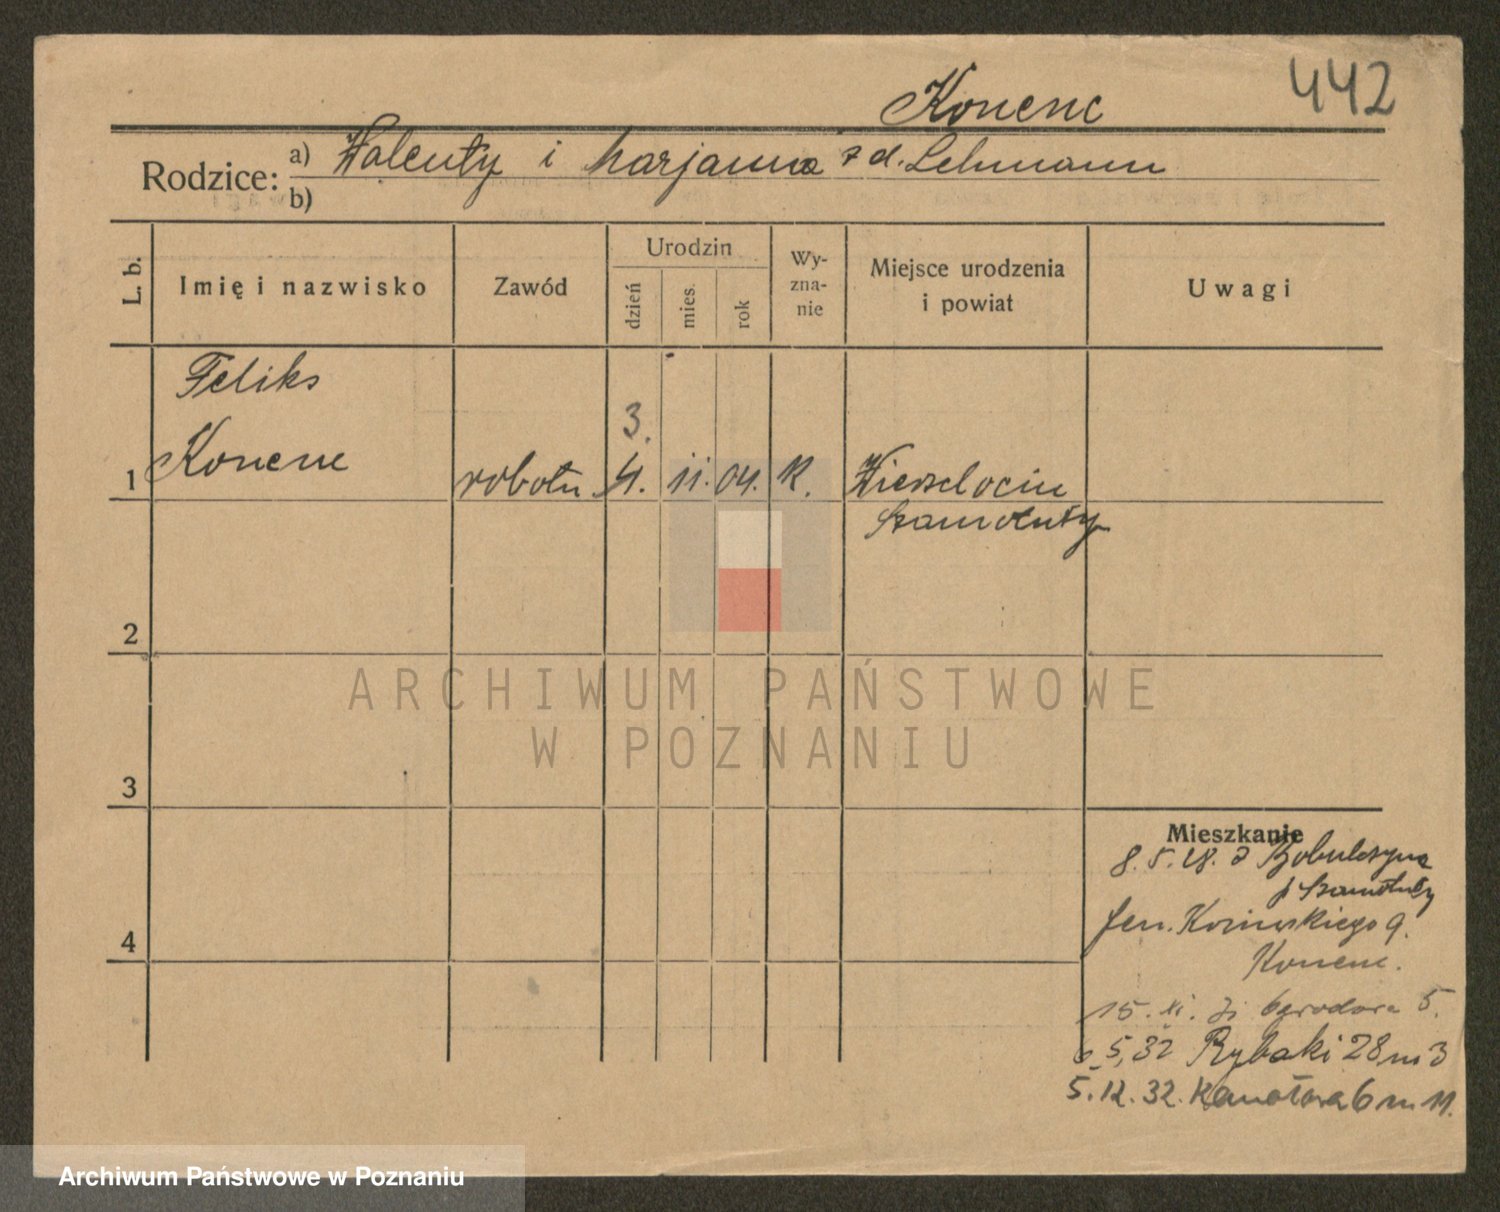 442
Konenc
Rodzice: a) Walenty i Marjanna z d. Lehmann
b)
L. b.
Imię i nazwisko
Zawód
Urodzin
dzień
mies.
rok
Wy-
zna-
nie
Miejsce urodzenia
i powiat
Uwagi
Feliks
3.
1 Konenc robotn. 4. 11. 04. K.
Szamotuły
2
3
4
ARCHIWUM PAŃSTWOWE
W POZNANIU
Mieszkanie
8. 5. 28. Z
Szamotuły
9.
Konenc.
15. XI. Ogrodowa 5.
6. 5. 32 Rybaki 28 m 3
5. 12. 32. Kanałowa 6 m 11.
Archiwum Państwowe w Poznaniu